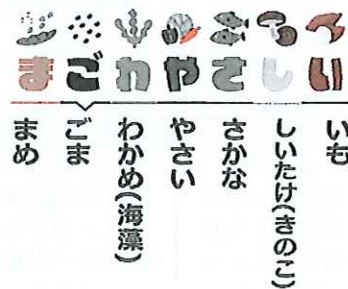 まごわやさしい
まめ
ごま
わかめ(海藻)
やさい
さかな
しいたけ(きのこ)
いも